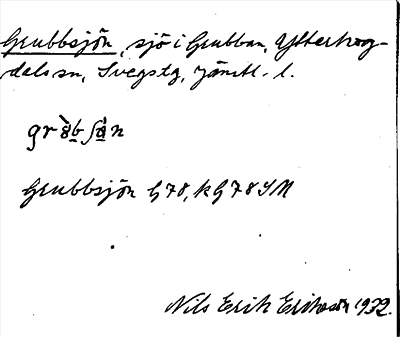 Grubbsjön, sjö i Grubban, Ytterhog-
dals sn, Svegs tg, Jämtl. l.
Grubbsjön G78, kG78SM
Nils Erik Eriksson 1932.